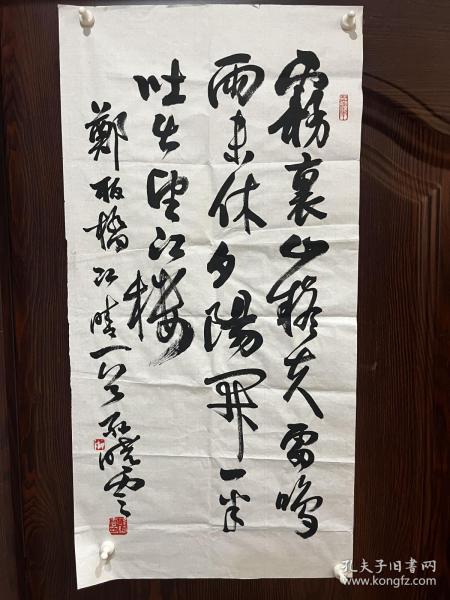 霧裹山疑失雷鳴
雨未休夕陽開一半
吐出望江楼
鄭板橋江晴一首孫曉雲
孔夫子旧书网
www.kongfz.com